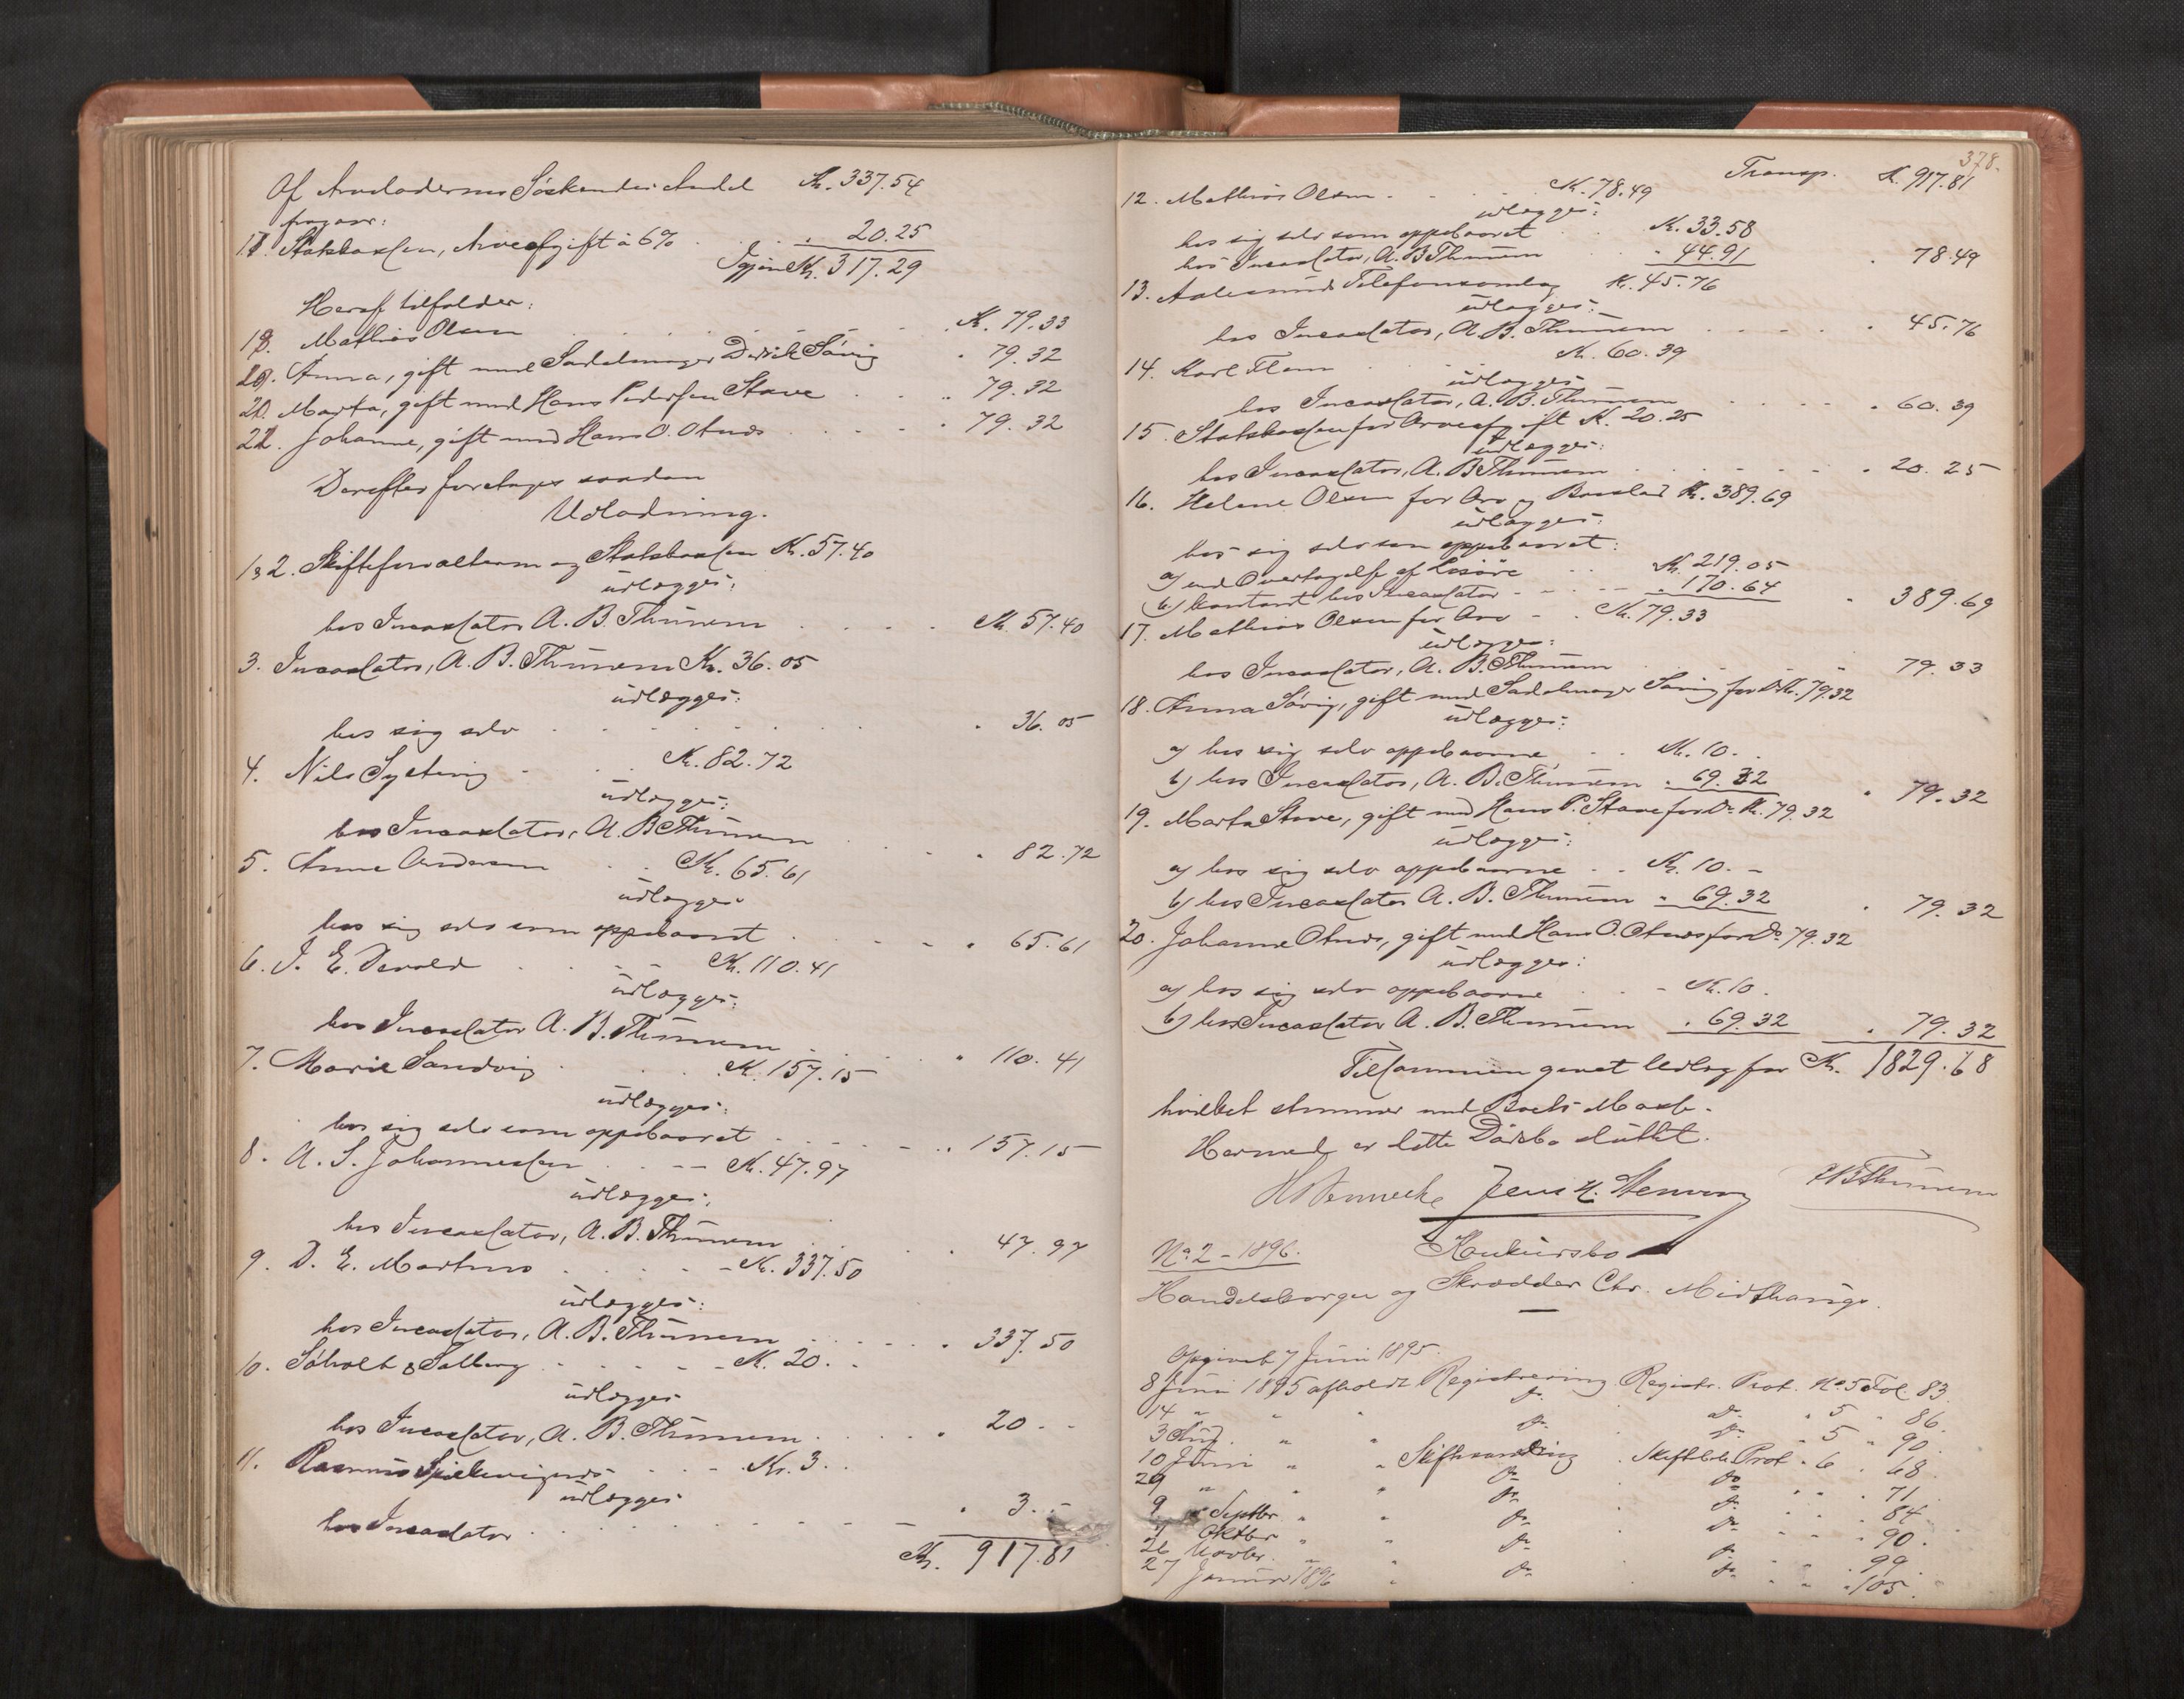 Af Arveladerens Søskendes Andel Kr. 337.54
fragaar:
18. Statskassen, Arveafgift à 6% . . . 20.25
Igjen Kr. 317.29
Heraf tilfalder:
19. Mathias Olsen . . . Kr. 79.33
20. Anna, gift med Sadelmager Søvig . 79.32
21. Marta, gift med Hans Pedersen Stave . . „ 79.32
22. Johanne, gift med Hans O. . . . 79.32
Derefter foretages saadan
Udlodning.
1 & 2. Skifteforvalteren og Statskassen Kr. 57.40
udlægges:
hos Incassator A. B. Thunem . . . Kr. 57.40
3. Incassator, A. B. Thunem Kr. 36.05
udlægges:
hos sig selv . . . 36.05
4. Nils Syltevig . . . Kr. 82.72
udlægges:
hos Incassator, A. B. Thunem . . . 82.72
5. Anne Andersen . . Kr. 65.61
udlægges
hos sig selv som oppebaaret . . . 65.61
6. I. E. Devold . . . Kr. 110.41
udlægges:
hos Incassator A. B. Thunem . . . „ 110.41
7. Marie Sandvig . . . Kr. 157.15
udlægges:
hos sig selv som oppebaaret . . . „ 157.15
8. A. S. Johannessen . . . Kr. 47.97
udlægges:
hos Incassator, A. B. Thunem . . . 47.97
9. D. E. Martens . . . Kr. 337.50
udlægges:
hos Incassator, A. B. Thunem . . . 337.50
10. Søholt & Solberg . . . Kr. 20. -
udlægges
hos Incassator, A. B. Thunem . . . 20. -
11. Rasmus . . . Kr. 3. .
udlægges
hos Incassator . . . 3. -
Kr. 917.81
378.
Transp. K. 917.81
12. Mathias Olsen . . . Kr. 78.49
udlægges:
hos sig selv som oppebaaret . . Kr. 33.58
hos Incassator, A. B. Thunem „ 44.91 . 78.49
13. Aalesunds Telefonsamlag K. 45.76
udlægges:
hos Incassator, A. B. Thunem . . . 45.76
14. Karl Flem . . . Kr. 60.39
udlægges
hos Incassator, A. B. Thunem . . . 60.39
15. Statskassen for Arveafgift K. 20.25
udlægges:
hos Incassator, A. B. Thunem . . . 20.25
16. Helene Olsen for Arv og Boeslod Kr. 389.69
udlægges:
hos sig selv som oppebaaret:
a) ved Overtagelse af Løsøre . . Kr. 219.05
b) kontant hos Incassator . . . 170.64 „ 389.69
17. Mathias Olsen for Arv - . Kr. 79.33
udlægges:
hos Incassator, A. B. Thunem . . . „ 79.33
18. Anna Søvig, gift med Sadelmager Søvig for Do Kr. 79.32
udlægges:
a) hos sig selv oppebaarne . . Kr. 10. -
b) hos Incassator, A. B. Thunem . 69.32 „ 79.32
19. Marta Stave, gift med Hans P. Stave for Do Kr. 79.32
udlægges:
a) hos sig selv oppebaarne . . Kr. 10. -
b) hos Incassator A. B. Thunem . 69.32 . 79.32
20. Johanne, gift med Hans O. for Do 79.32
udlægges:
a) hos sig selv oppebaarne . . - Kr. 10.
b) hos Incassator A. B. Thunem . 69.32 „ 79.32
Tilsammen gjøret Udlæg for Kr. 1829.68
hvilket stemmer med Boets Masse.
Hermed er dette Dødsbo sluttet.
Jens H. ABThunem
No 2 - 1896. Konkursbo
Handelsborger og Skrædder Chr. Midthaugs.
Opgivet 7 Juni 1895.
8 Juni 1895 afholdt Registrering Registr. Prot. No 5 Fol. 83
14 „ „ „ do do „ 5 „ 86
3 Aug. „ „ do do 5 „ 90
10 Juni „ „ Skiftesamling . Skiftebh. Prot „ 6 „ 68
29 „ „ „ do do „ „ 71
9 Septbr „ „ do do „ „ 84
7 Oktbr „ „ do do „ „ 90.
26 Novbr. „ „ do do „ „ 99
27 Januar 1896 „ do do „ „ 105.